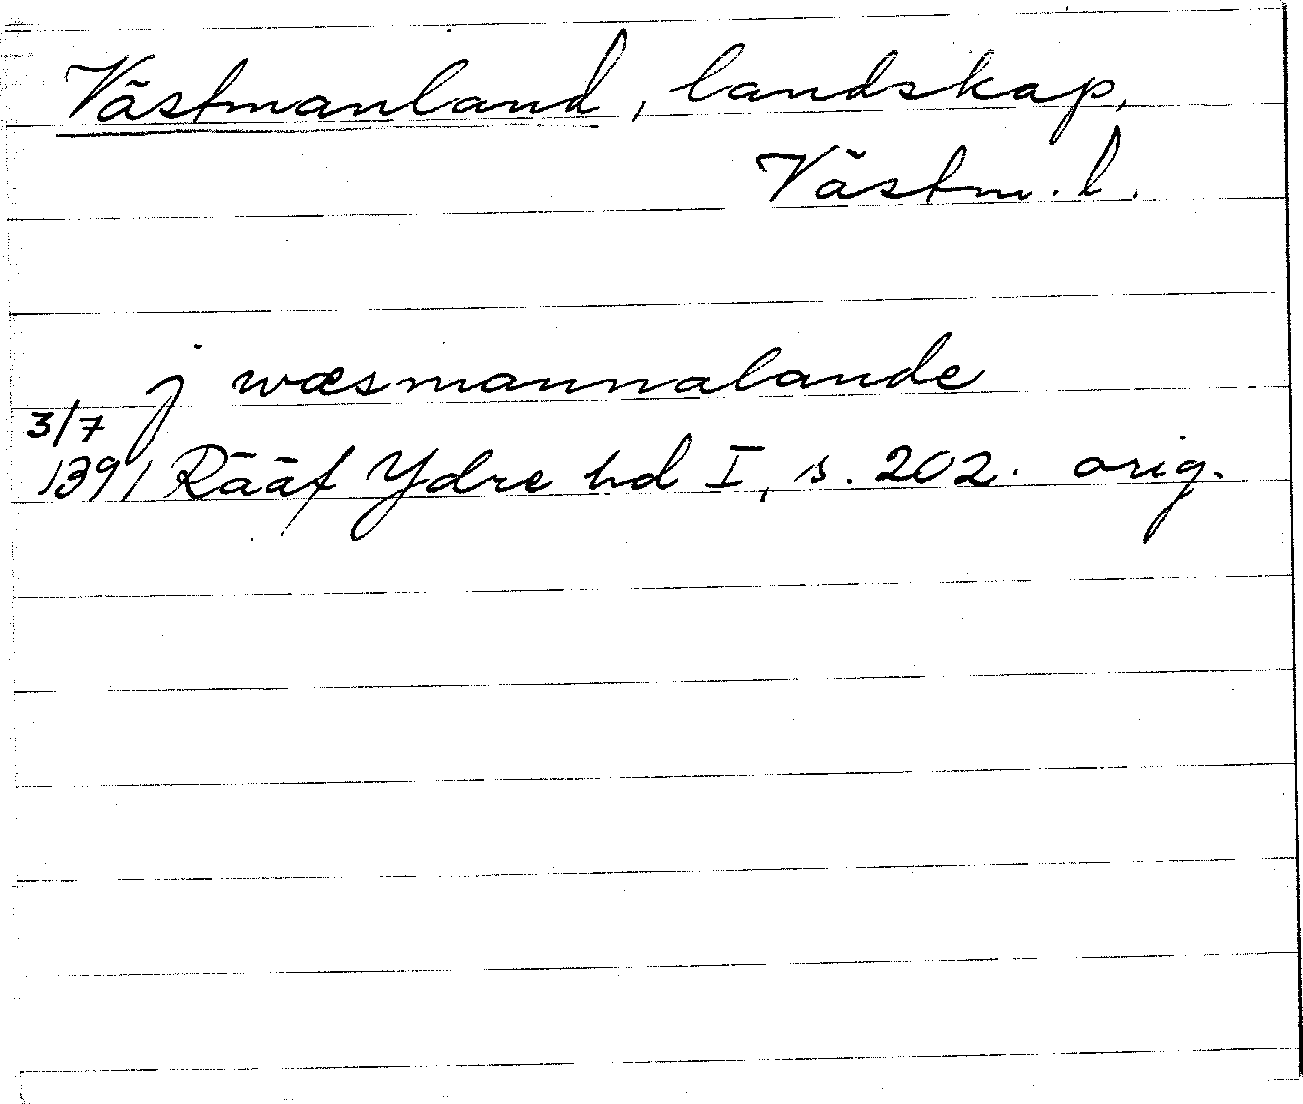 Västmanland, landskap,
Västm. l.
j wæsmannalande
3/7
1391 Rääf Ydre hd I, s. 202. orig.